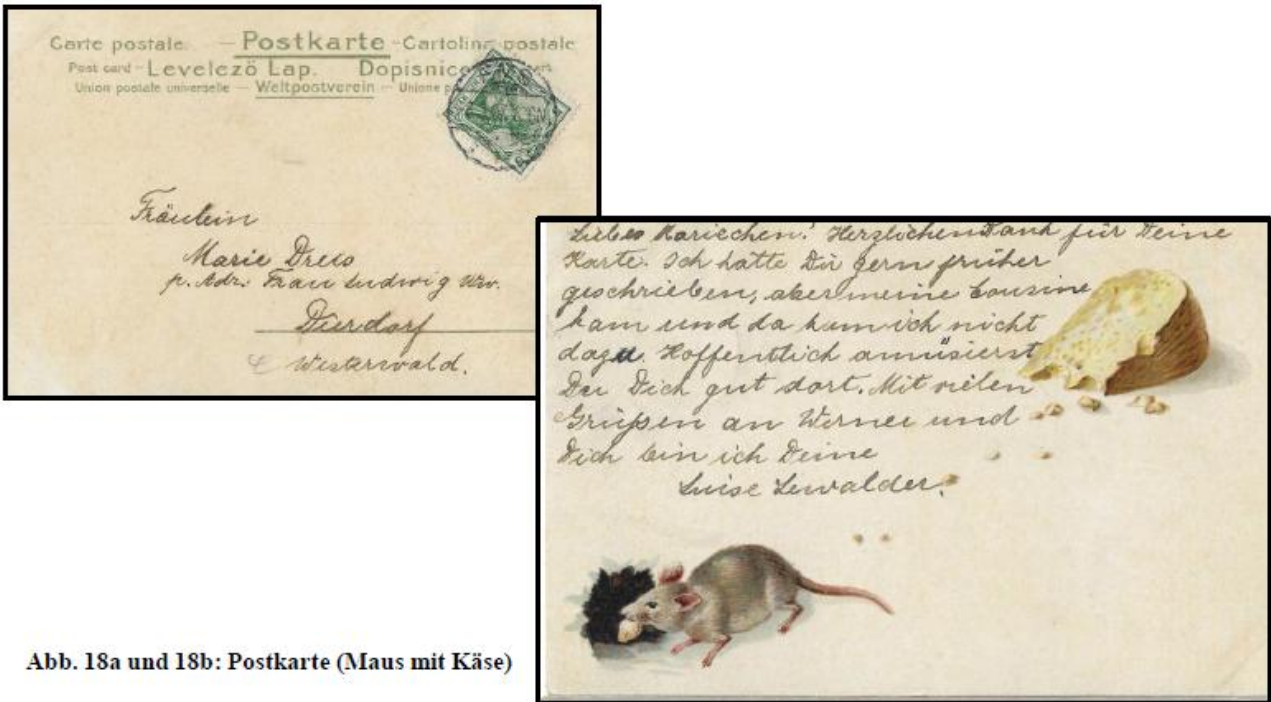 Carte postale. — Postkarte - Cartolina postale
Post card - Levelező Lap. Dopisnice
Union postale universelle — Weltpostverein — Unione
Fräulein
Marie Dreis
p. Adr. Frau Ludwig Ww.
Dierdorf
Westerwald.
Liebes Mariechen! Herzlichen Dank für Deine
Karte. Ich hätte Dir gern früher
geschrieben, aber meine Cousine
kam und da kam ich nicht
dazu. Hoffentlich amüsierst
Du Dich gut dort. Mit vielen
Grüßen an Werner und
Dich bin ich Deine
Luise Lewalder.
Abb. 18a und 18b: Postkarte (Maus mit Käse)